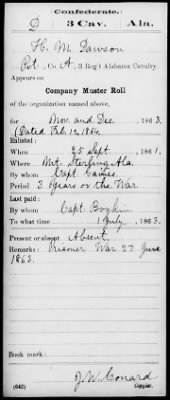 Confederate.
D 3 Cav. Ala.
H. M. Dawson
Pvt., Co. A, 3 Reg't Alabama Cavalry.
Appears on
Company Muster Roll
of the organization named above,
for Nov. and Dec., 1863.
(Dated Feb. 12, 1864
Enlisted:
When 25 Sept, 1861.
Where Mt. Sterling Ala.
By whom Capt.
Period 3 Years or the War.
Last paid:
By whom Capt. Boykin
To what time 1 July, 1863.
Present or absent Absent.
Remarks: Prisoner War 27 June
1863.
Book mark:
(642) J. W. Conard
Copyist.